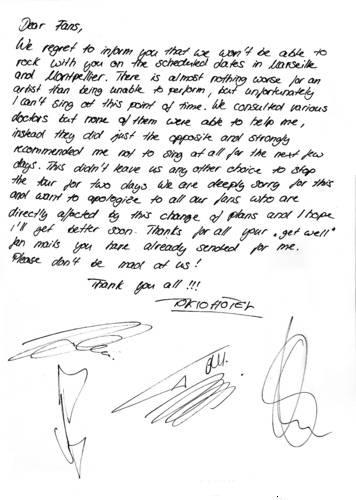 Dear Fans,
We regret to inform you that we won't be able to
rock with you on the scheduled dates in Marseille
and Montpellier. There is almost nothing worse for an
artist than being unable to perform, but unfortunately
I can't sing at this point of time. We consulted various
doctors but none of them were able to help me,
instead they did just the opposite and strongly
recommended me not to sing at all for the next few
days. This didn't leave us any other choice to stop
the tour for two days. We are deeply sorry for this
and want to apologize to all our fans who are
directly affected by this change of plans and I hope
I'll get better soon. Thanks for all your "get well"
fan mails you have already sended for me.
Please don't be mad at us!
Thank you all !!!
TOKIO HOTEL